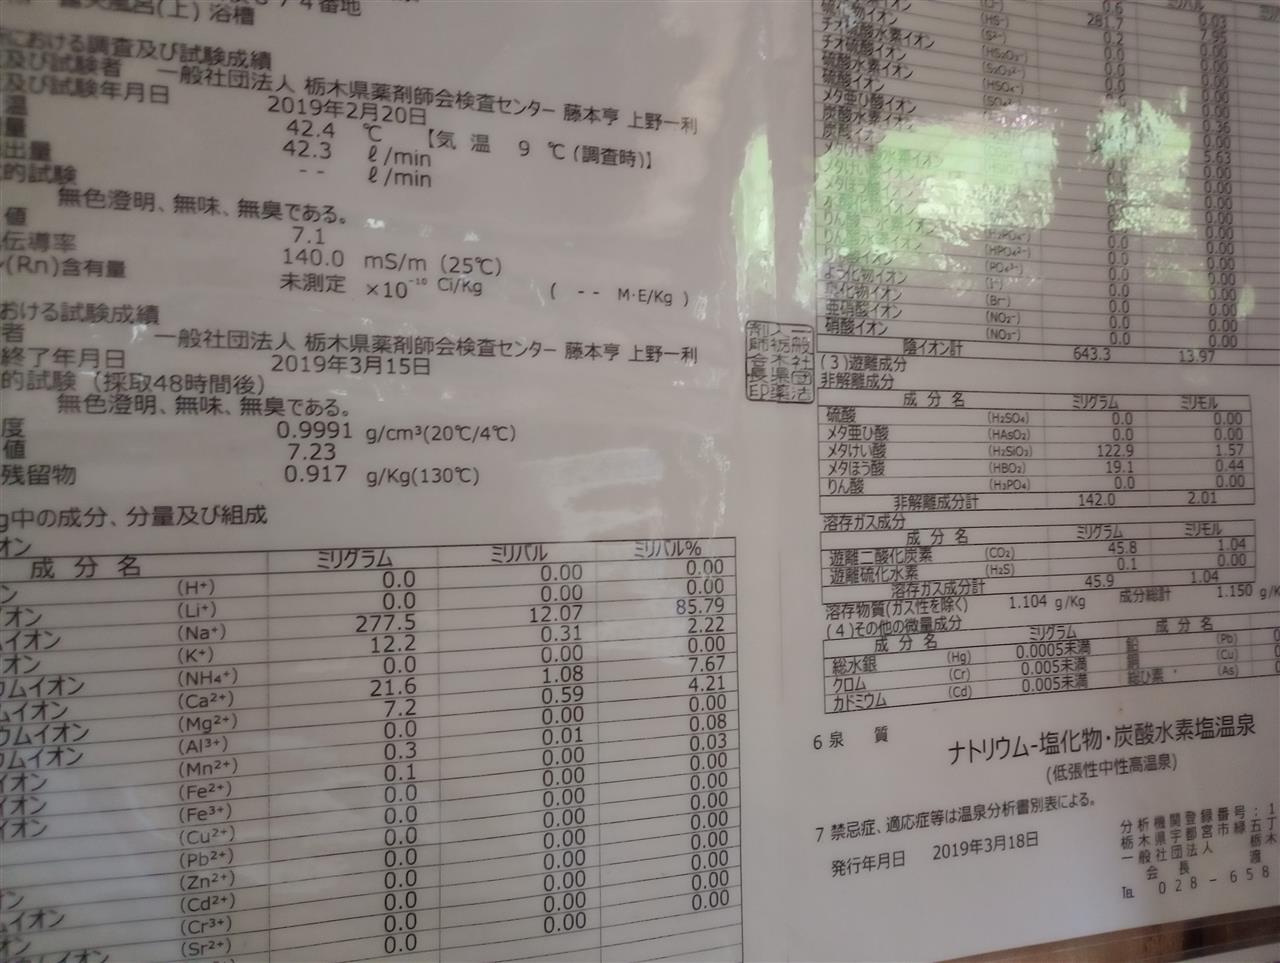 番地
露天風呂(上) 浴槽
における調査及び試験成績
及び試験者 一般社団法人 栃木県薬剤師会検査センター 藤本亨 上野一利
及び試験年月日 2019年2月20日
温 42.4 ℃ 【気 温 9 ℃(調査時)】
量 42.3 ℓ/min
出量 -- ℓ/min
的試験
無色澄明、無味、無臭である。
値 7.1
伝導率 140.0 mS/m (25℃)
(Rn)含有量 未測定 ×10⁻¹⁰ Ci/Kg ( -- M・E/Kg )
おける試験成績
者 一般社団法人 栃木県薬剤師会検査センター 藤本亨 上野一利
終了年月日 2019年3月15日
的試験 (採取48時間後)
無色澄明、無味、無臭である。
度 0.9991 g/cm³(20℃/4℃)
値 7.23
残留物 0.917 g/Kg(130℃)
g中の成分、分量及び組成
オン
成 分 名 ミリグラム ミリバル ミリバル%
(H⁺) 0.0 0.00 0.00
(Li⁺) 0.0 0.00 0.00
(Na⁺) 277.5 12.07 85.79
(K⁺) 12.2 0.31 2.22
(NH₄⁺) 0.0 0.00 0.00
(Ca²⁺) 21.6 1.08 7.67
(Mg²⁺) 7.2 0.59 4.21
(Al³⁺) 0.0 0.00 0.00
(Mn²⁺) 0.3 0.01 0.08
(Fe²⁺) 0.1 0.00 0.03
(Fe³⁺) 0.0 0.00 0.00
(Cu²⁺) 0.0 0.00 0.00
(Pb²⁺) 0.0 0.00 0.00
(Zn²⁺) 0.0 0.00 0.00
(Cd²⁺) 0.0 0.00 0.00
(Cr³⁺) 0.0 0.00 0.00
(Sr²⁺) 0.0
ミリバル
0.6 0.03
(HS⁻) 281.7 7.95
チオ硫酸水素イオン (S²⁻) 0.2
チオ硫酸イオン (HS₂O₃⁻) 0.0 0.00
硫酸水素イオン (S₂O₃²⁻) 0.0 0.00
硫酸イオン (HSO₄⁻) 0.0 0.00
メタ亜ひ酸イオン
炭酸水素イオン 0.36
炭酸イオン
5.63
(H₂PO₄⁻) 0.0 0.00
(HPO₄²⁻) 0.0 0.00
りん酸イオン (PO₄³⁻) 0.0 0.00
よう化物イオン (I⁻) 0.0 0.00
臭化物イオン (Br⁻) 0.0 0.00
亜硝酸イオン (NO₂⁻) 0.0 0.00
硝酸イオン (NO₃⁻) 0.0 0.00
陰イオン計 643.3 13.97
(3)遊離成分
非解離成分
成 分 名 ミリグラム ミリモル
硫酸 (H₂SO₄) 0.0 0.00
メタ亜ひ酸 (HAsO₂) 0.0 0.00
メタけい酸 (H₂SiO₃) 122.9 1.57
メタほう酸 (HBO₂) 19.1 0.44
りん酸 (H₃PO₄) 0.0 0.00
非解離成分計 142.0 2.01
溶存ガス成分
成 分 名 ミリグラム ミリモル
遊離二酸化炭素 (CO₂) 45.8 1.04
遊離硫化水素 (H₂S) 0.1 0.00
溶存ガス成分計 45.9 1.04
溶存物質(ガス性を除く) 1.104 g/Kg 成分総計 1.150 g/K
(4)その他の微量成分
成 分 名 ミリグラム 成 分 名
総水銀 (Hg) 0.0005未満 鉛 (Pb)
クロム (Cr) 0.005未満 銅 (Cu)
カドミウム (Cd) 0.005未満 総ひ素 (As)
6 泉 質 ナトリウム-塩化物・炭酸水素塩温泉
(低張性中性高温泉)
7 禁忌症、適応症等は温泉分析書別表による。
発行年月日 2019年3月18日
分析機関登録番号:1
栃木県宇都宮市緑五丁
一般社団法人 栃木
会 長 渡
TEL 028-658